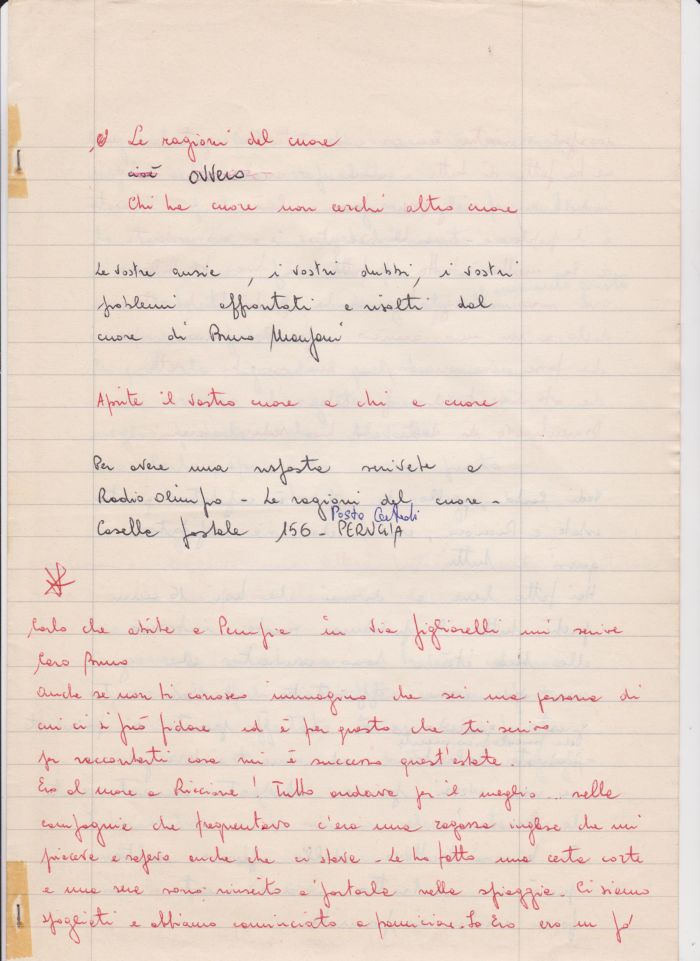 Le ragioni del cuore
cioè ovvero
Chi ha cuore non cerchi altro cuore
Le vostre ansie, i vostri dubbi, i vostri
problemi affrontati e risolti dal
cuore di Bruno
Aprite il vostro cuore a chi a cuore
Per avere una risposta scrivete a
Radio Olimpo - Le ragioni del cuore -
Casella postale 156 - Posta PERUGIA
Carlo che abita a Perugia in via mi scrive
Caro Bruno
Anche se non ti conosco immagino che sei una persona di
cui ci si può fidare ed è per questo che ti scrivo
per raccontarti cosa mi è successo quest'estate.
Ero al mare a Riccione! Tutto andava per il meglio... nella
compagnia che frequentavo c'era una ragazza inglese che mi
piaceva e sapevo anche che ci stava - Le ho fatto una certa corte
e una sera sono riuscito a portarla nella spiaggia. Ci siamo
spogliati e abbiamo cominciato a pomiciare. Io Ero ero un pò